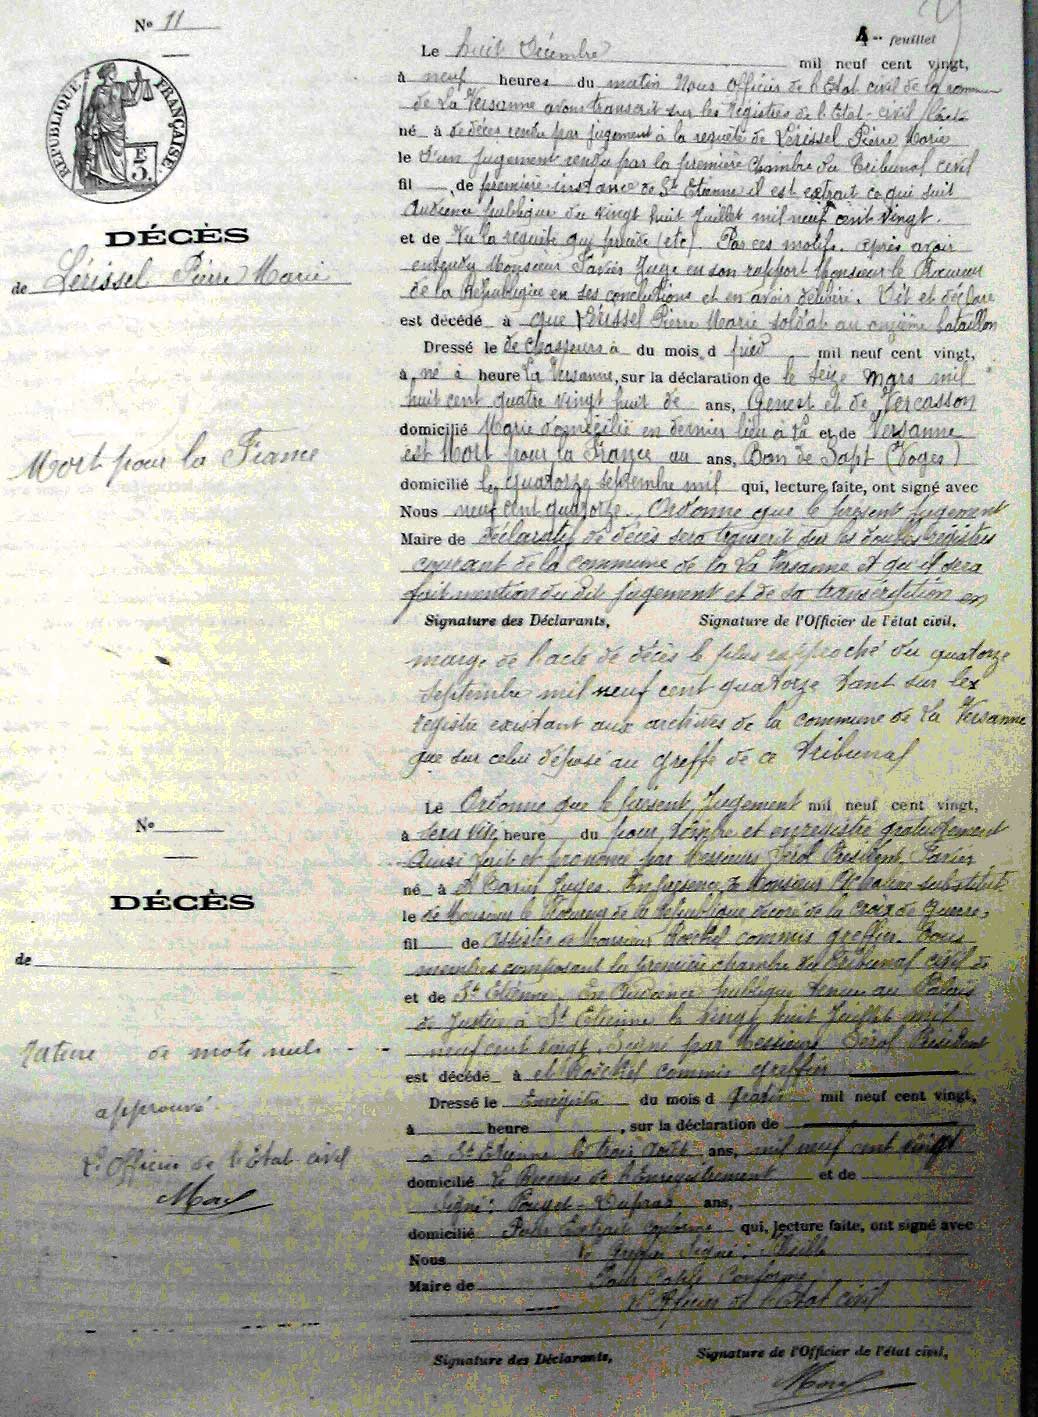 Nº 11
RÉPUBLIQUE FRANÇAISE
DÉCÈS
de Lérissel Pierre Marie
Mort pour la France
Nº
DÉCÈS
de
Rature de mots nuls
approuvé
L'Officier de l'Etat civil
4 feuillet
Le huit Décembre mil neuf cent vingt,
à neuf heures du matin Nous Officier de l'Etat civil de la commune
de La Versanne avons transcrit sur les registres de l'Etat-civil l'acte
né à de décès rendu par jugement à la requête de Lérissel Pierre Marie
le D'un jugement rendu par la première chambre du Tribunal civil
fil de première instance de St Etienne il est extrait ce qui suit
Audience publique du vingt huit Juillet mil neuf cent vingt.
et de Vu la requête qui précède (etc). Par ces motifs. après avoir
entendu Monsieur Favier Juge en son rapport Monsieur le Procureur
de la République en ses conclusions et en avoir délibéré. Dit et déclare
est décédé à que Lérissel Pierre Marie soldat au onzième bataillon
Dressé le de chasseurs à du mois d pied mil neuf cent vingt,
à né à heure La Versanne, sur la déclaration de le seize mars mil
huit cent quatre vingt huit de ans, Genest et de Vercasson
domicilié Marie domicilié en dernier lieu à La et de Versanne
est Mort pour la France au ans, Ban de Sapt (Voges)
domicilié le quatorze septembre mil qui, lecture faite, ont signé avec
Nous neuf cent quatorze. Ordonne que le présent jugement
Maire de déclaratif de décès sera transcrit sur les doubles registres
courant de la commune de la La Versanne et qu'il sera
fait mention du dit jugement et de sa transcription en
Signature des Déclarants, Signature de l'Officier de l'état civil,
marge de l'acte de décès le plus rapproché du quatorze
septembre mil neuf cent quatorze tant sur les
registre existant aux archives de la commune de La Versanne
que sur celui déposé au greffe de ce Tribunal
Le Ordonne que le présent Jugement mil neuf cent vingt,
à sera visé heure du pour timbre et enregistré gratuitement
Ainsi fait et prononcé par Messieurs Sérol Président, Favier
né à Juges. En présence de Monsieur substitut
le de Monsieur le Procureur de la République décoré de la croix de guerre,
fil de assistés de Monsieur Rockel commis greffier. Tous
membres composant la première chambre du Tribunal civil de
et de St Etienne. En Audience publique tenue au Palais
de Justice à St Etienne le vingt huit Juillet mil
neuf cent vingt. Signé par Messieurs Sérol Président
est décédé à et Rockel commis greffier
Dressé le Enregistré du mois d gratis mil neuf cent vingt,
à heure , sur la déclaration de
à St Etienne le trois Août ans, mil neuf cent vingt
domicilié Le Receveur de l'Enregistrement et de
Signé: Pouget-Duprat ans,
domicilié Pour Extrait conforme qui, lecture faite, ont signé avec
Nous Le Greffier Signé:
Maire de Pour Copie Conforme
L'Officier de l'Etat civil
Signature des Déclarants, Signature de l'Officier de l'état civil,